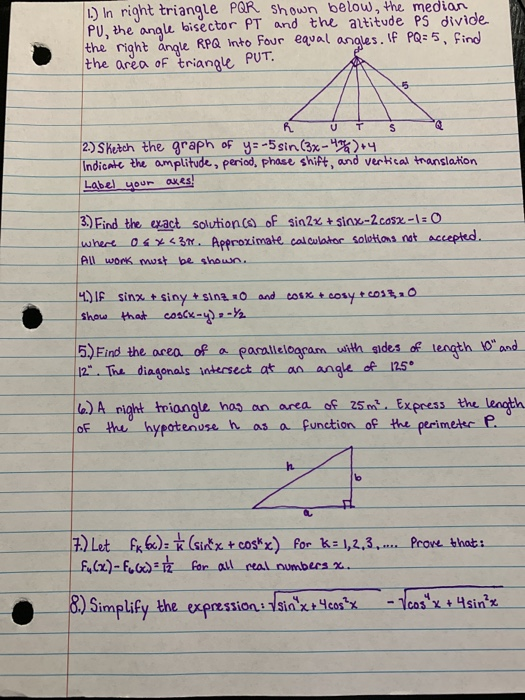 1.) In right triangle PQR shown below, the median
PU, the angle bisector PT and the altitude PS divide
the right angle RPQ into four equal angles. If PQ=5, find
the area of triangle PUT.
P
5
R U T S Q
2.) Sketch the graph of y=-5sin(3x-4π/9)+4
Indicate the amplitude, period, phase shift, and vertical translation
Label your axes!
3.) Find the exact solution(s) of sin2x + sinx-2cosx-1=0
where 0≤x<3π. Approximate calculator solutions not accepted.
All work must be shown.
4.) IF sinx + siny + sinz=0 and cosx + cosy + cosz=0
show that cos(x-y)=-1/2
5.) Find the area of a parallelogram with sides of length 10" and
12". The diagonals intersect at an angle of 125°
6.) A right triangle has an area of 25m². Express the length
of the hypotenuse h as a function of the perimeter P.
h
b
a
7.) Let Fₖ(x)= 1/k (sinᵏx + cosᵏx) for k=1,2,3,.... Prove that:
F₄(x)-F₆(x)=1/12 for all real numbers x.
8.) Simplify the expression: √sin⁴x+4cos²x - √cos⁴x + 4sin²x